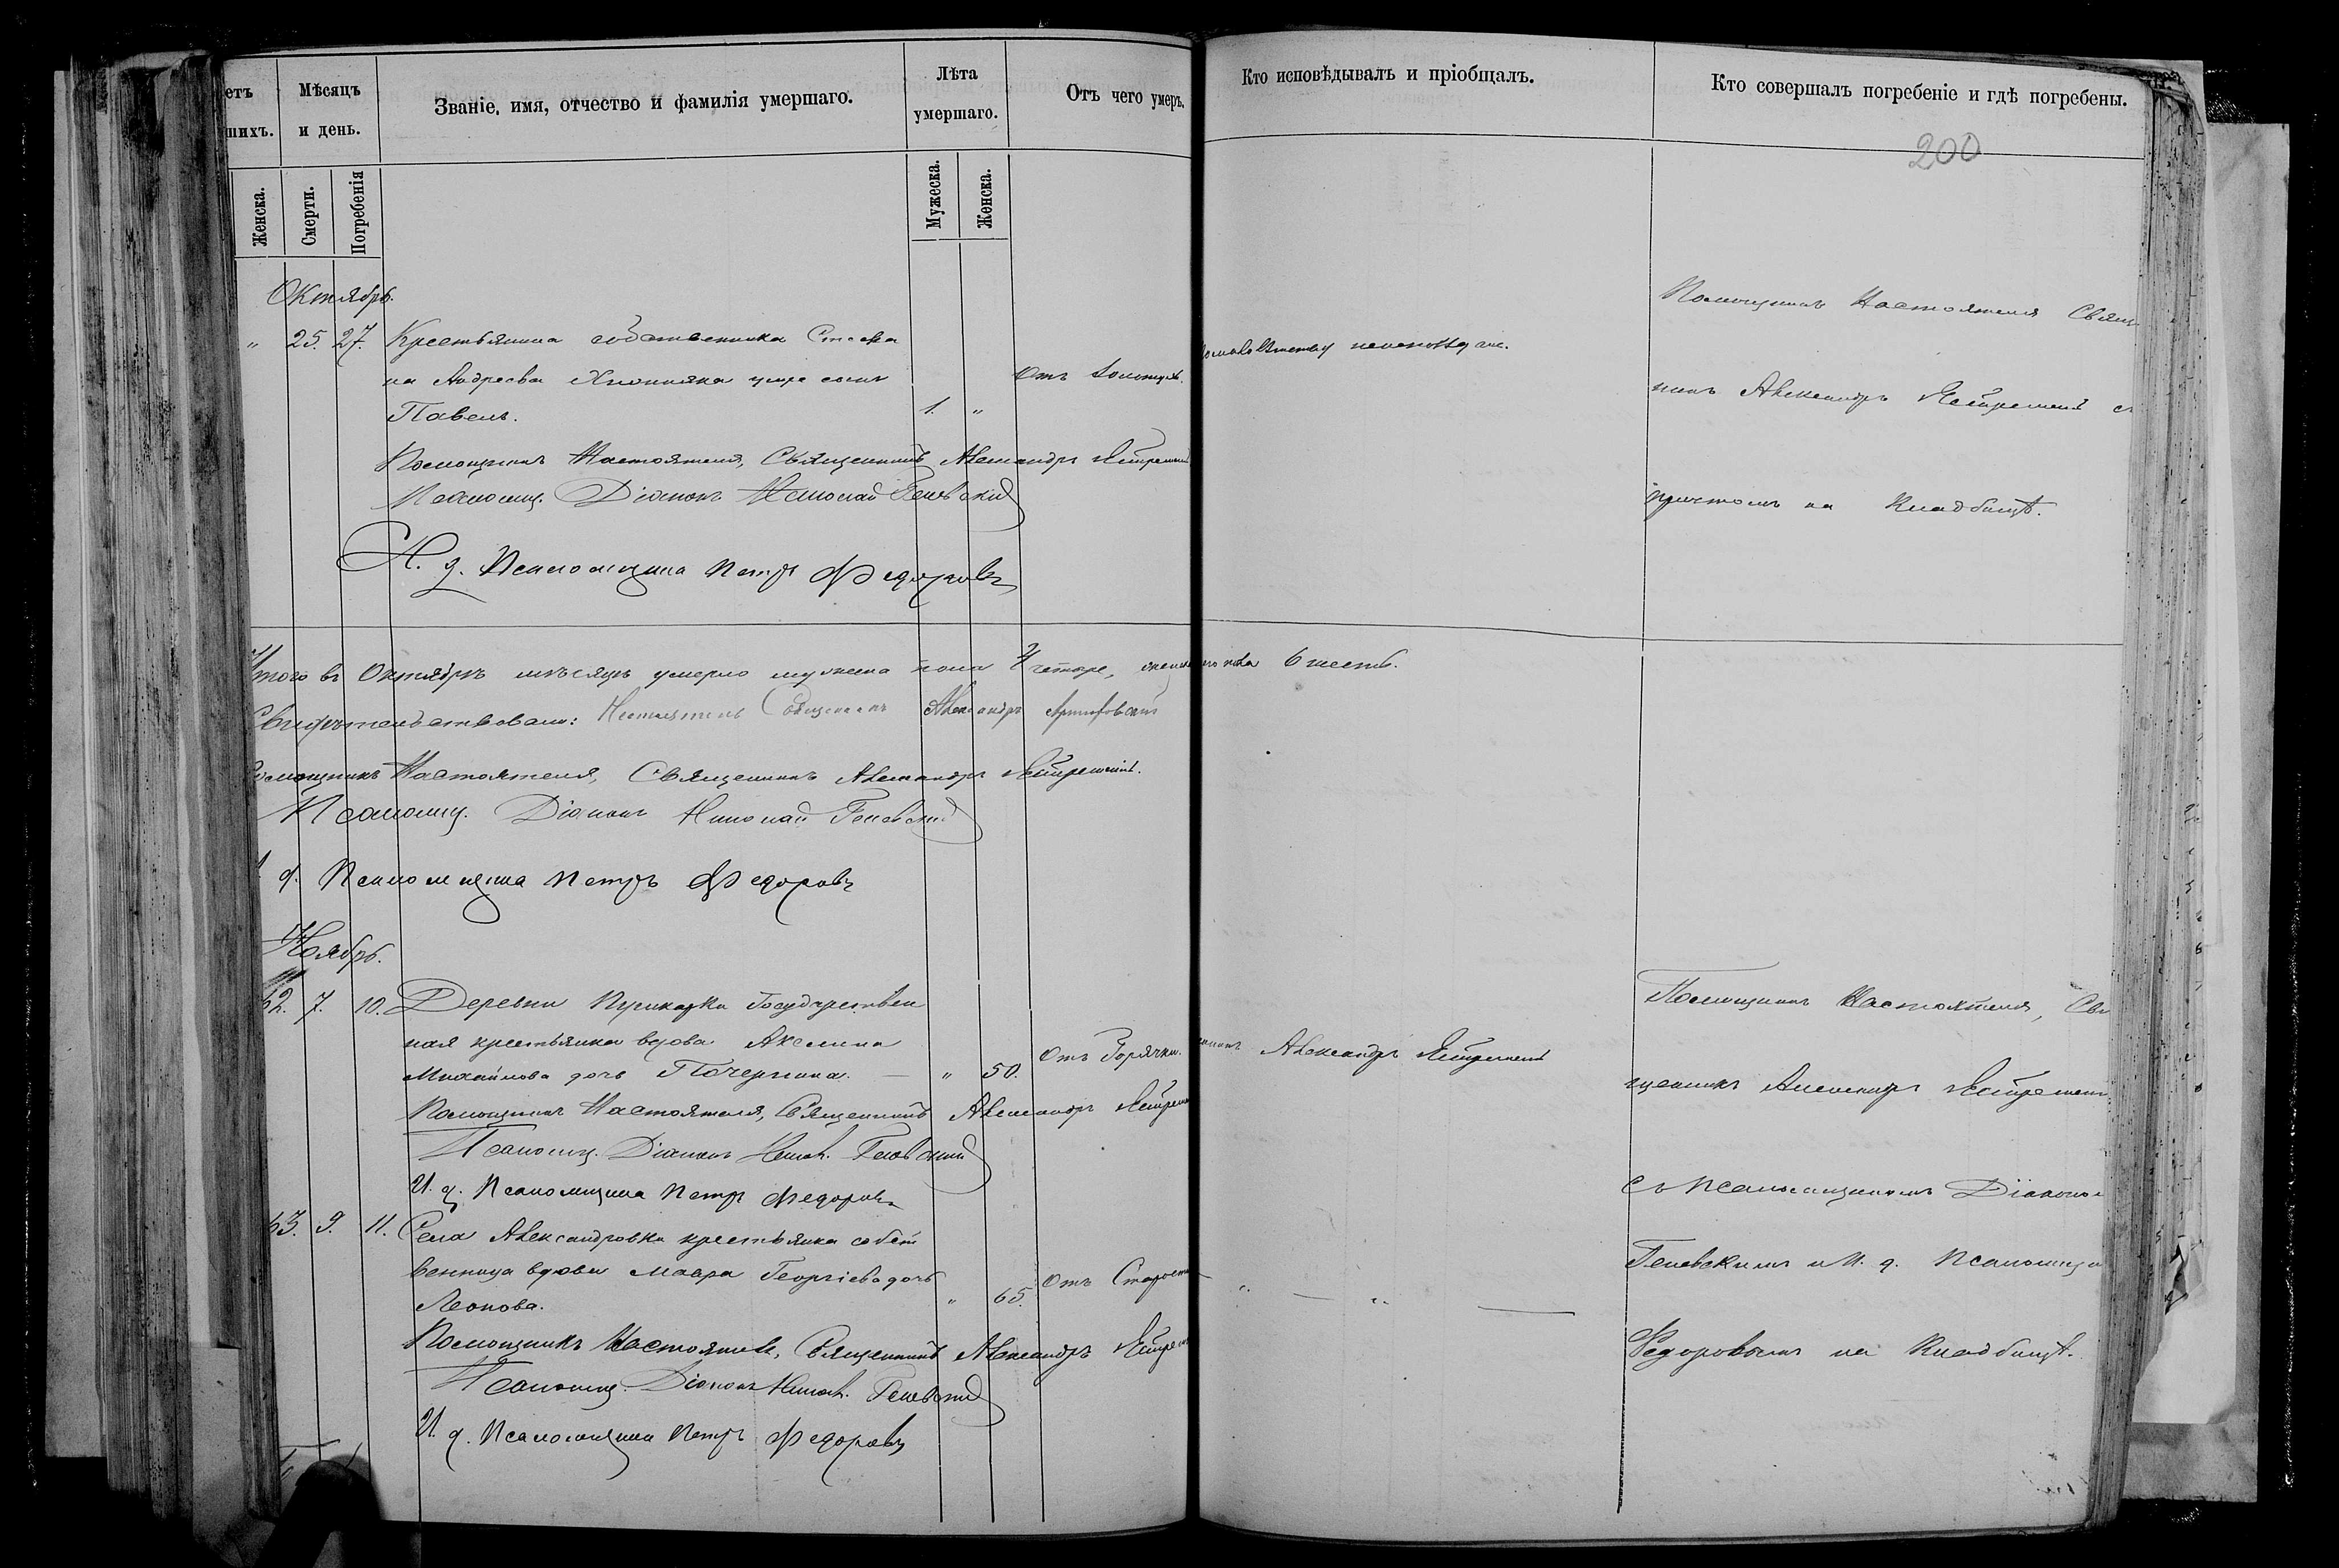 етъ
шихъ.
Мѣсяцъ
и день.
Званіе, имя, отчество и фамилія умершаго.
Лѣта
умершаго.
Отъ чего умеръ.
Кто исповѣдывалъ и пріобщалъ.
Кто совершалъ погребеніе и гдѣ погребены.
200
Женска.
Смерти.
Погребенія
Мужеска.
Женска.
Октябрь.
" 25. 27. Крестьянина собственника Степа
на Андреева сынъ
Павелъ. 1. "
Отъ
Помощникъ Настоятеля, Священникъ Александръ
Псаломщ. Діаконъ Николай Геневскій
И. д. Псаломщика Петръ Федоровъ
Помощникъ Настоятеля Свящ
никъ Александръ
причтомъ на Кладбищѣ.
Итого въ Октябрѣ мѣсяцѣ умерло мужеска пола 4 четыре, женскаго пола 6 шесть.
Свидѣтельствовали: Настоятель Священникъ Александръ
Помощникъ Настоятеля, Священникъ Александръ
Псаломщ. Діаконъ Николай Геневскій
д. Псаломщика Петръ Федоровъ
Ноябрь.
62. 7. 10. Деревни Государствен
ная крестьянка вдова Акслина
Михайлова дочь " 50.
Отъ Горячки.
Александръ
Помощникъ Настоятеля, Священникъ Александръ
Псаломщ. Діаконъ Никол. Геневскій
И. д. Псаломщика Петръ Федоровъ
63. 9. 11. Села Александровки крестьянка собст
венница вдова Мавра Георгіева дочь
Леонова. " 65.
Отъ Старости
Помощникъ Настоятеля, Священникъ Александръ
Псаломщ. Діаконъ Никол. Геневскій
И. д. Псаломщика Петръ Федоровъ
Помощникъ Настоятеля, Свя
щенникъ Александръ
съ Псаломщикомъ Діаконом
Геневскимъ и И. д. Псаломщи
Федоровымъ на Кладбищѣ.